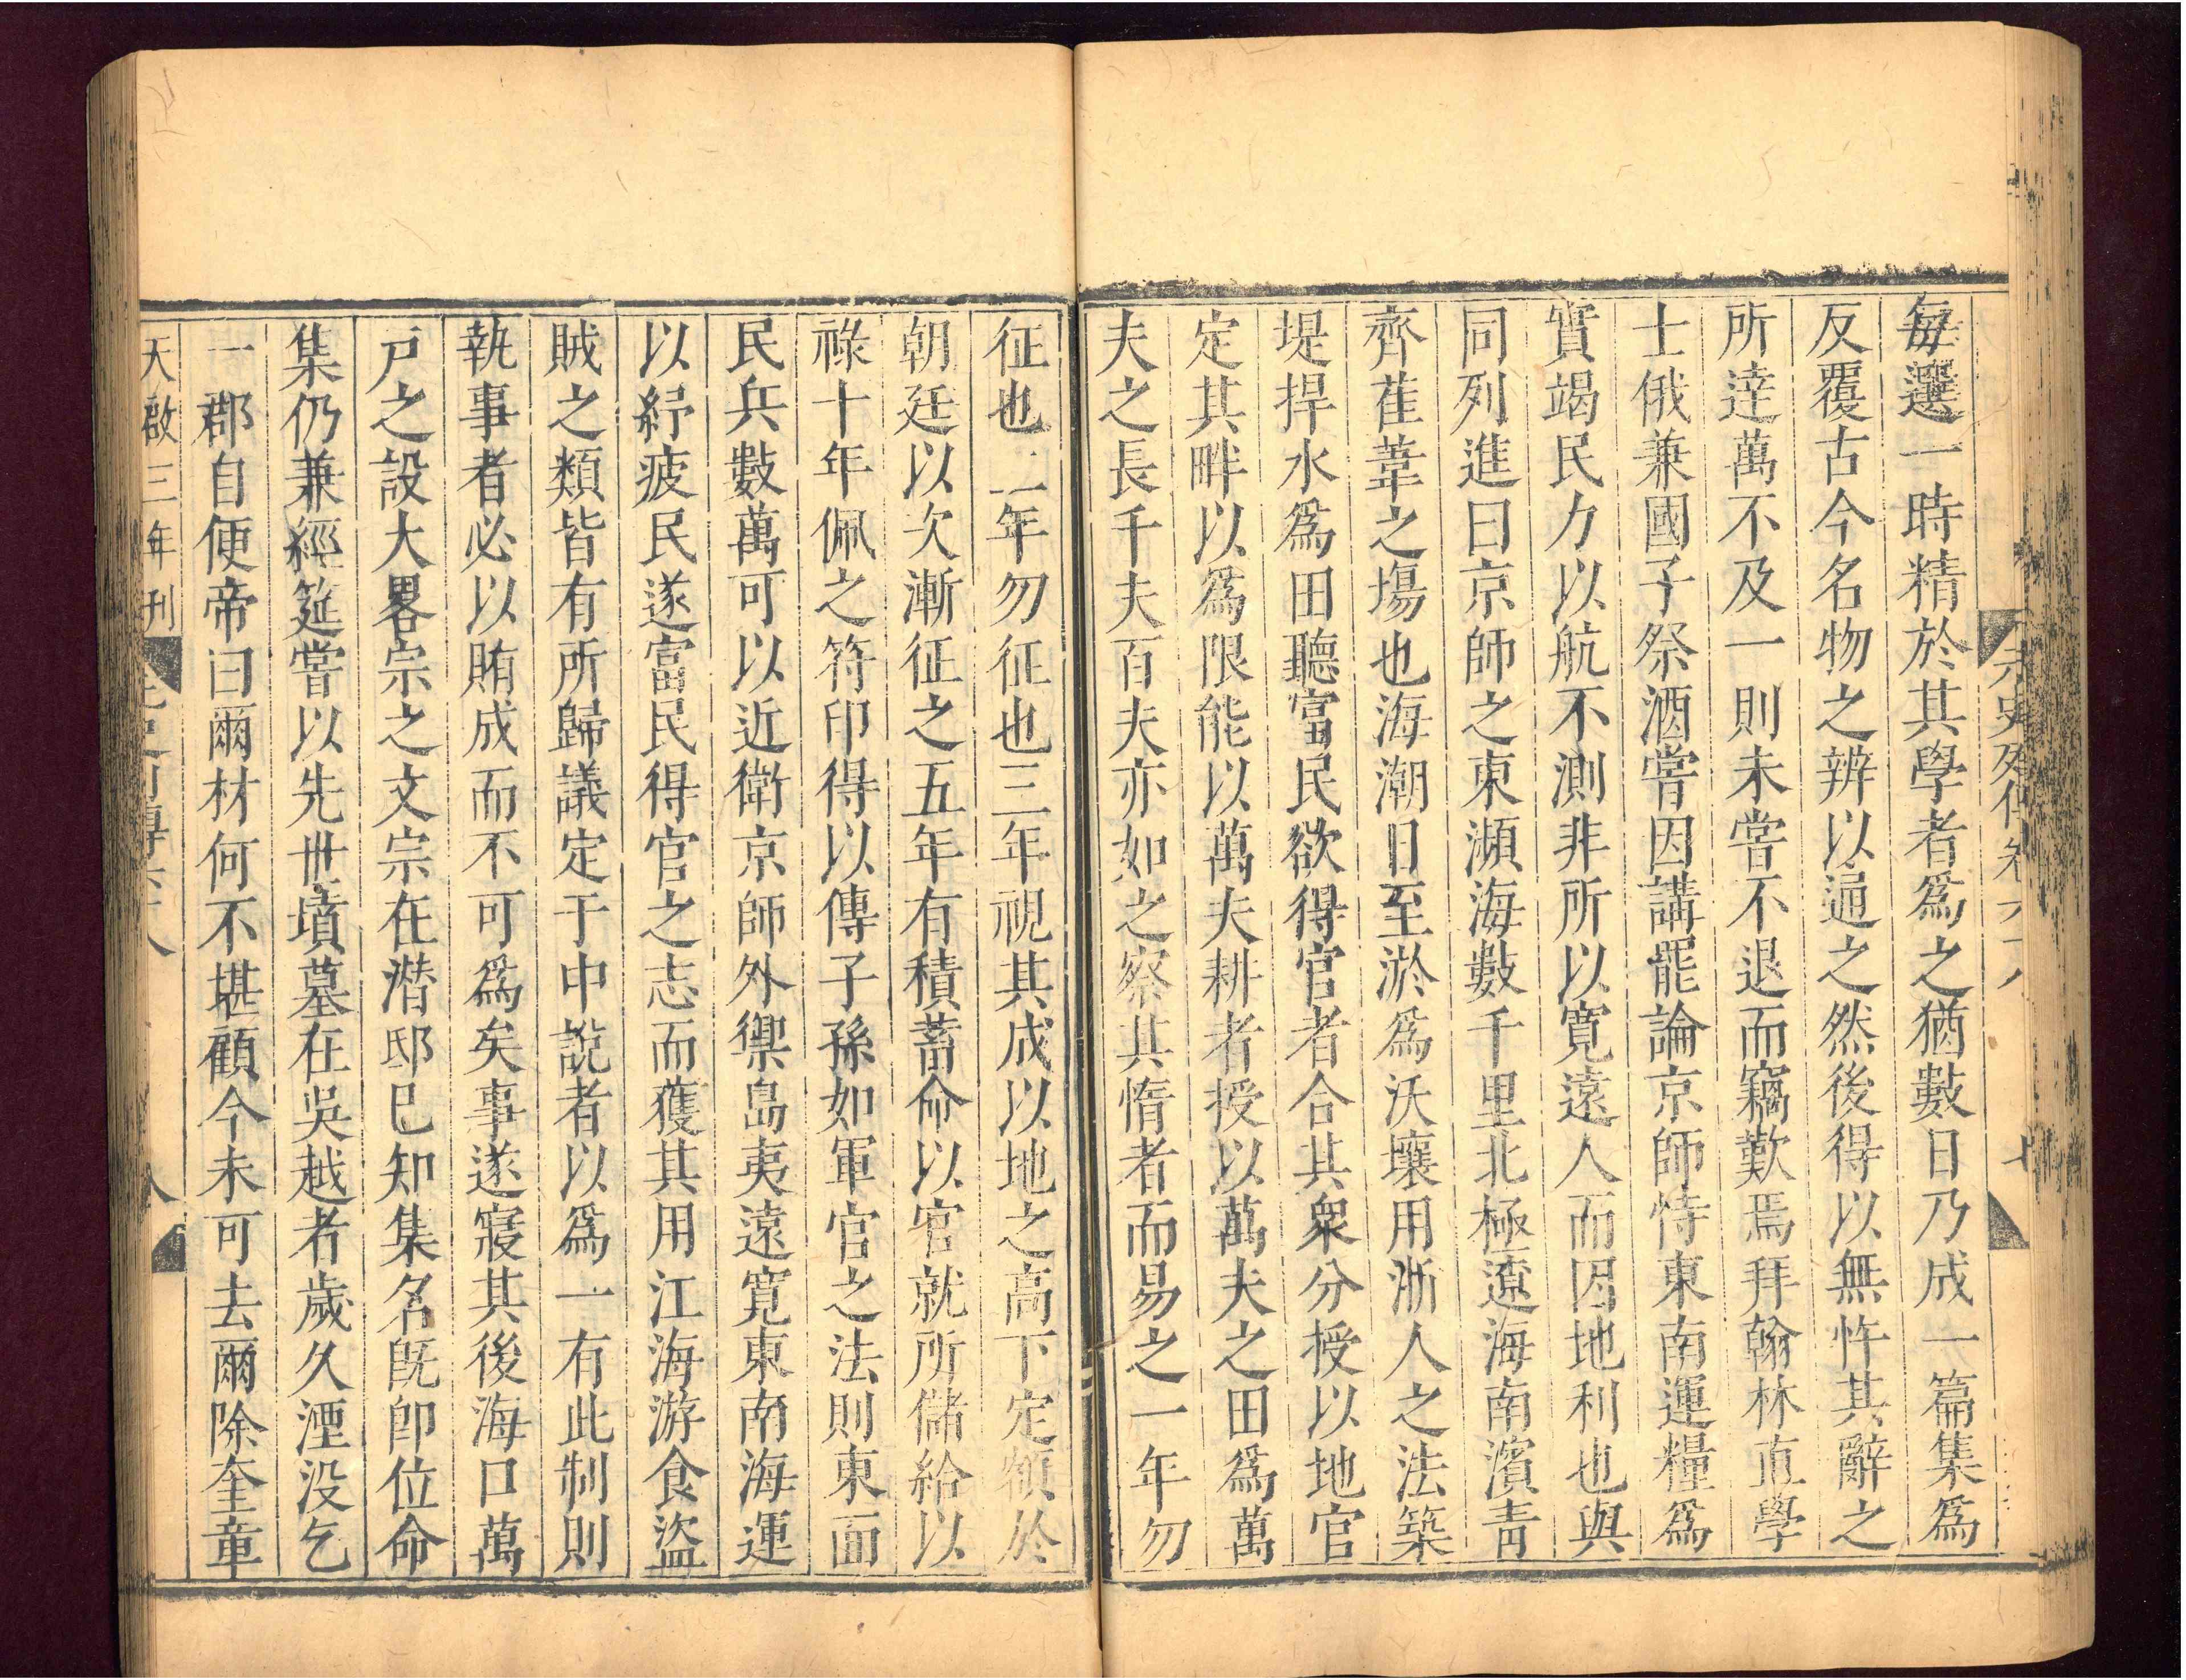 元史列傳卷六十八
每選一時精於其學者爲之猶數日乃成一篇集爲
反覆古今名物之辨以通之然後得以無忤其辭之
所達萬不及一則未嘗不退而竊歎焉拜翰林直學
士俄兼國子祭酒嘗因講罷論京師恃東南運糧爲
實竭民力以航不測非所以寛遠人而因地利也與
同列進曰京師之東瀕海數千里北極遼海南濱青
齊萑葦之塲也海潮日至淤爲沃壤用浙人之法築
堤捍水爲田聽富民欲得官者合其衆分授以地官
定其畔以爲限能以萬夫耕者授以萬夫之田爲萬
夫之長千夫百夫亦如之察其惰者而易之一年勿
征也二年勿征也三年視其成以地之高下定額於
朝廷以次漸征之五年有積蓄命以官就所儲給以
祿十年佩之符印得以傳子孫如軍官之法則東面
民兵數萬可以近衛京師外禦島夷遠寛東南海運
以紓疲民遂富民得官之志而獲其用江海游食盜
賊之類皆有所歸議定于中說者以爲一有此制則
執事者必以賄成而不可爲矣事遂寢其後海口萬
戸之設大畧宗之文宗在潛邸巳知集名旣卽位命
集仍兼經筵嘗以先世墳墓在吳越者歲久湮没乞
一郡自便帝曰爾材何不堪顧今未可去爾除奎章
天啟三年刊
八